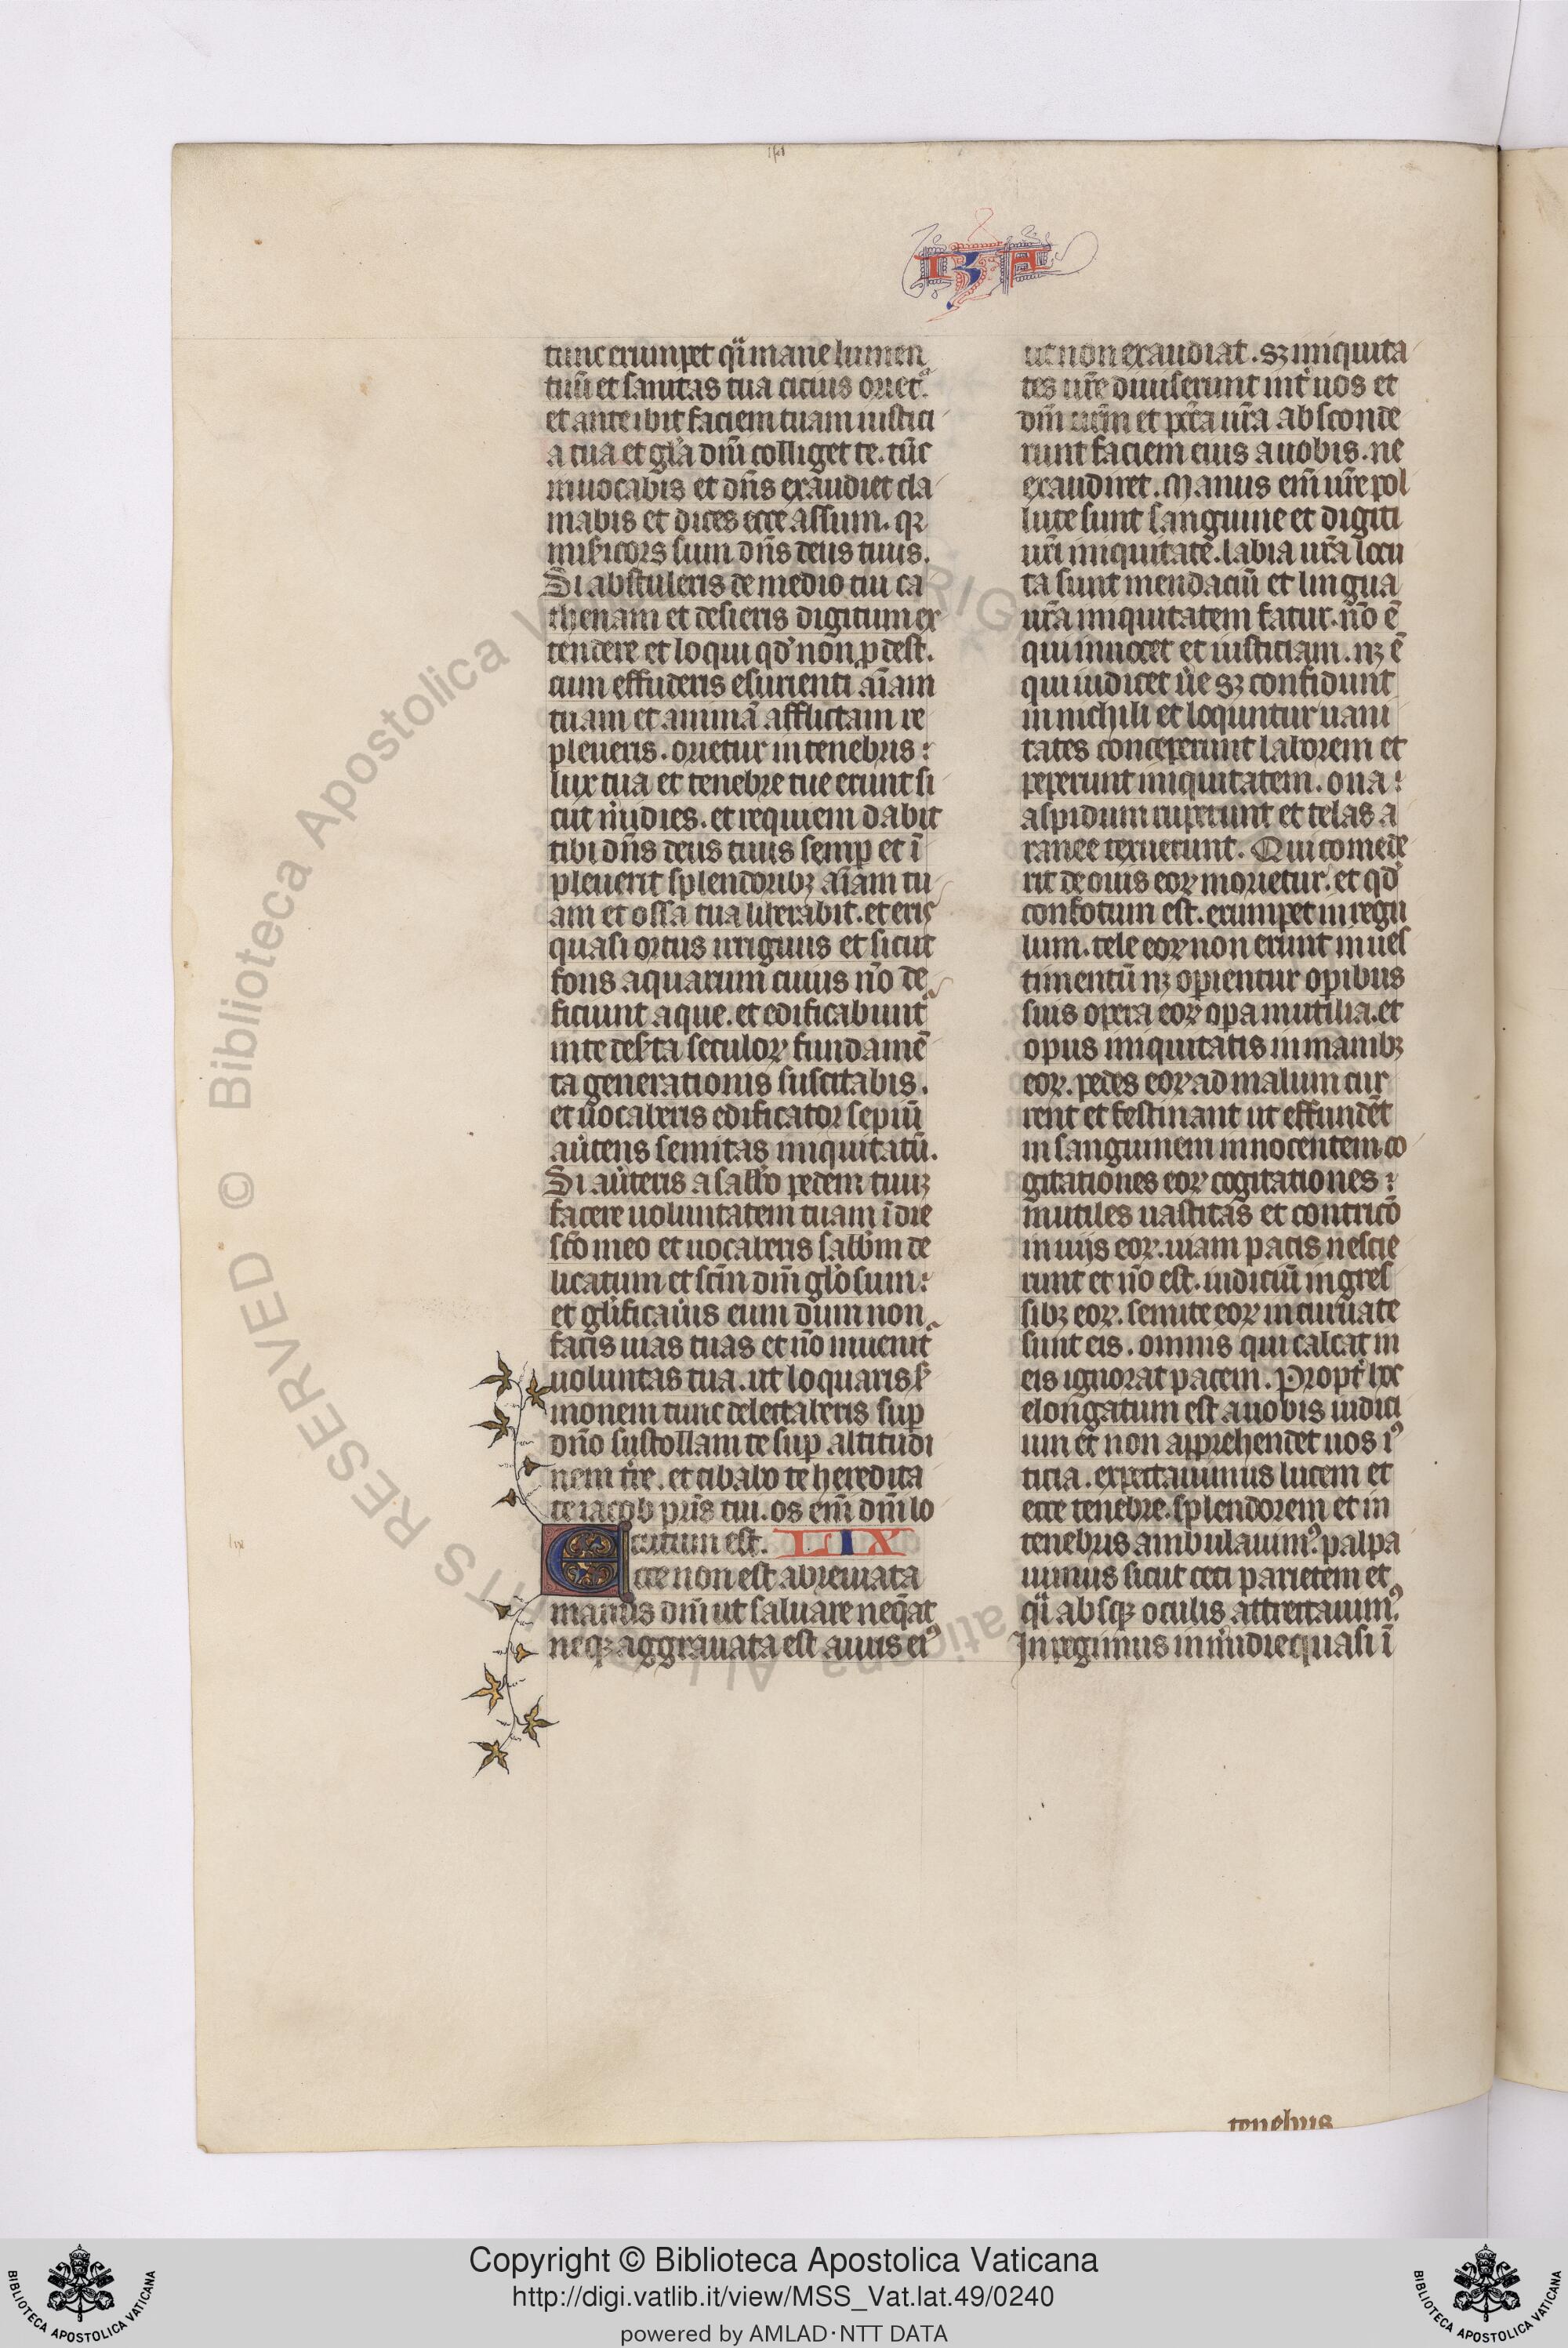 IZA
tunc erumpet qͥ mane lumen
tuū et sanitas tua citius orietᷣ.
et anteibit faciem tuam iustici
a tua et gl̄a dn̄i colliget te. tūc
inuocabis et dn̄s exaudiet cla
mabis et dices ecce assum. qꝛ
mis̄icors sum dn̄s deus tuus.
Si abstuleris de medio tui ca
thenam et desieris digitum ex
tendere et loqui qd̓ non ꝓdest.
cum effuderis esurienti aīam
tuam et animā afflictam re
pleueris. orietur in tenebris:
lux tua et tenebre tue erunt si
cut m̓idies. et requiem dabit
tibi dn̄s deus tuus semꝑ et ī
pleuerit splendoribꝫ aīam tu
am et ossa tua liberabit. et eris
quasi ortus irriguus et sicut
fons aquarum cuius nō de
ficiunt aque. et edificabuntᷣ
in te des̓ta seculoꝝ fundamē
ta generationis suscitabis.
et uocaberis edificator sepiū
au̓tens semitas iniquitatū.
Si au̓teris a sabb̓o pedem tuuꝫ
facere uoluntatem tuam ī die
sc̄o meo et uocaberis sabb̓m de
licatum et sc̄m dn̄i gl̓osum:
et gl̓ificau̓is eum dum non
facis uias tuas et nō inuenitᷣ
uoluntas tua. ut loquaris s̓
monem tunc delectaberis suꝑ
dn̄o sustollam te suꝑ altitudi
nem t̓re. et cibabo te heredita
te iacob pr̄is tui. os enī dn̄i lo
cutum est. LIX
Ecce non est abreuiata
manus dn̄i ut saluare neq̄at
neqꝫ aggrauata est auris eiꝰ
ut non exaudiat. sꝫ iniquita
tes ur̄e diuiserunt int̓ uos et
dm̄ ur̄m et pctā ur̄a absconde
runt faciem eius a uobis. ne
exaudiret. Manus enī ur̄e pol
lute sunt sanguine et digiti
ur̄i iniquitatē. labia ur̄a locu
ta sunt mendaciū et lingua
ur̄a iniquitatem fatur. nō ē
qui inuocet et iusticiam. nꝫ ē
qui iudicet u̓e sꝫ confidunt
in nichili et loquntur uani
tates conceperunt laborem et
pepererunt iniquitatem. oua:
aspidum ruperunt et telas a
ranee texuerunt. Qui comede
rit de ouis eoꝝ morietur. et qd̓
confotum est. erumpet in regu
lum. tele eoꝝ non erunt in ues
timentū nꝫ operientur operibus
suis opera eoꝝ oꝑa inutilia. et
opus iniquitatis in manibꝫ
eoꝝ. pedes eoꝝ ad malum cur
rent et festinant ut effundēt
in sanguinem innocentem. co
gitationes eoꝝ cogitationes:
inutiles uastitas et contricō
in uijs eoꝝ. uiam pacis nescie
runt et nō est. iudiciū in gres
sibꝫ eoꝝ. semite eoꝝ incuruate
sunt eis. omnis qui calcat in
eis ignorat pacem. Propt̓ hoc
elongatum est a uobis iudici
um et non apprehendet uos iꝰ
ticia. expectauimus lucem et
ecce tenebre. splendorem et in
tenebris ambulauimꝰ. palpa
uimus sicut ceci parietem et
qͥ absqꝫ oculis attrectauimꝰ.
Inpegimus in m̓idie quasi ī
tenebris
Copyright © Biblioteca Apostolica Vaticana
http://digi.vatlib.it/view/MSS_Vat.lat.49/0240
powered by AMLAD·NTT DATA
BIBLIOTECA APOSTOLICA VATICANA
BIBLIOTECA APOSTOLICA VATICANA
© Biblioteca Apostolica Vaticana ALL RIGHTS RESERVED